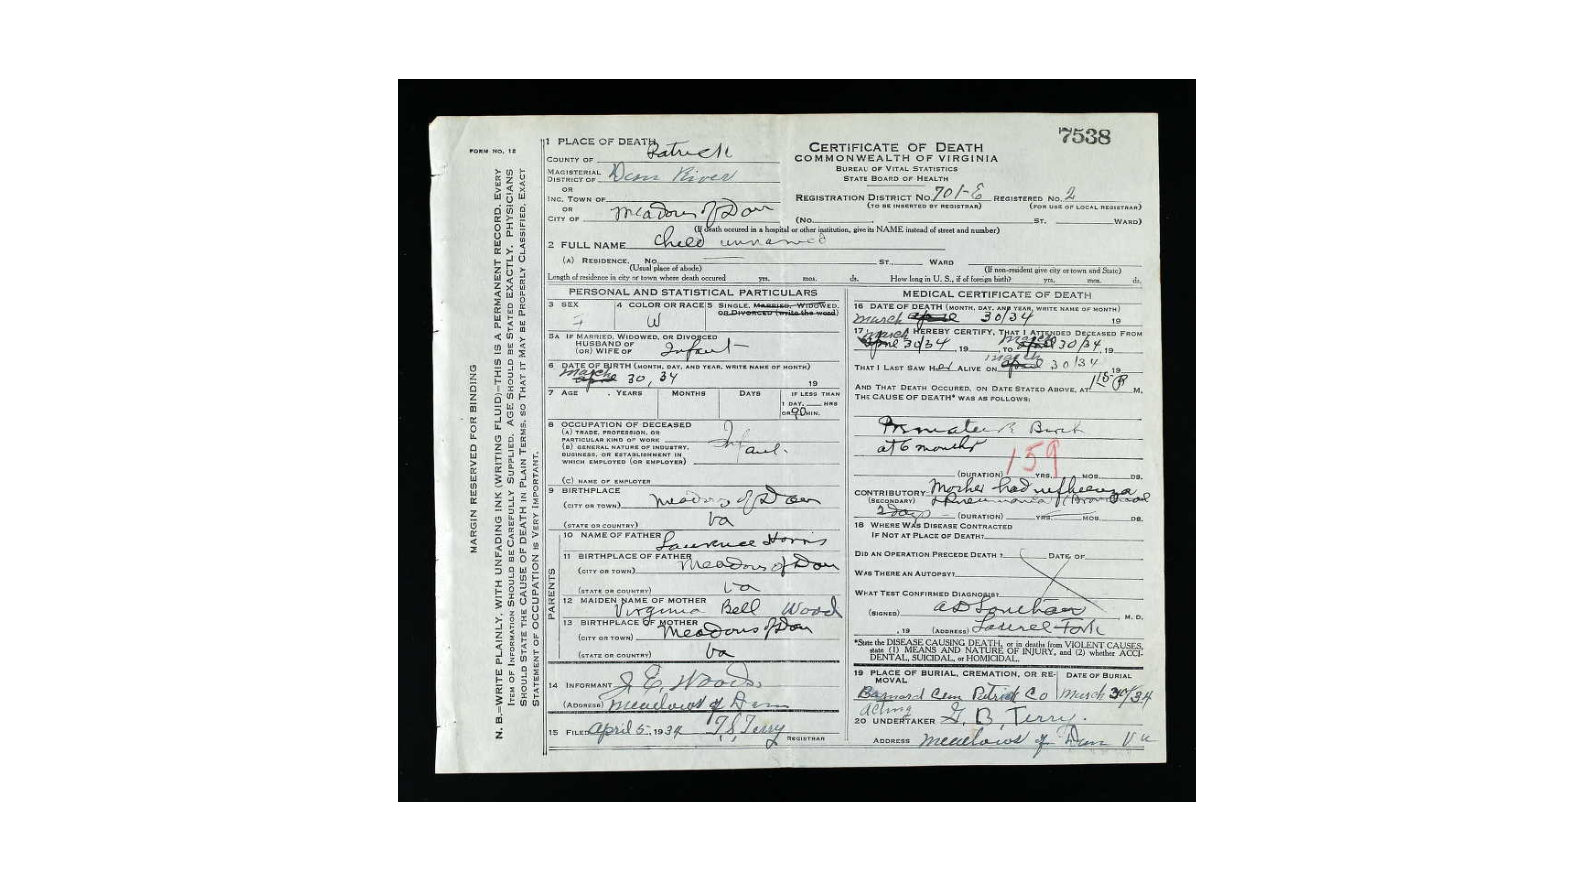 7538
FORM NO. 12
MARGIN RESERVED FOR BINDING
N. B.—WRITE PLAINLY, WITH UNFADING INK (WRITING FLUID)—THIS IS A PERMANENT RECORD. EVERY
ITEM OF INFORMATION SHOULD BE CAREFULLY SUPPLIED. AGE SHOULD BE STATED EXACTLY. PHYSICIANS
SHOULD STATE THE CAUSE OF DEATH IN PLAIN TERMS, SO THAT IT MAY BE PROPERLY CLASSIFIED. EXACT
STATEMENT OF OCCUPATION IS VERY IMPORTANT.
1 PLACE OF DEATH
COUNTY OF Patrick
MAGISTERIAL
DISTRICT OF Dan River
OR
INC. TOWN OF
OR
CITY OF Meadows of Dan
CERTIFICATE OF DEATH
COMMONWEALTH OF VIRGINIA
BUREAU OF VITAL STATISTICS
STATE BOARD OF HEALTH
REGISTRATION DISTRICT NO. 701-E REGISTERED NO. 2
(TO BE INSERTED BY REGISTRAR) (FOR USE OF LOCAL REGISTRAR)
(No. ST. WARD)
(If death occured in a hospital or other institution, give its NAME instead of street and number)
2 FULL NAME Child unnamed
(A) RESIDENCE. No. ST. WARD
(Usual place of abode) (If non-resident give city or town and State)
Length of residence in city or town where death occured yrs. mos. ds. How long in U. S., if of foreign birth? yrs. mos. ds.
PERSONAL AND STATISTICAL PARTICULARS
3 SEX 4 COLOR OR RACE 5 SINGLE, MARRIED, WIDOWED,
OR DIVORCED (write the word)
F W
5A IF MARRIED, WIDOWED, OR DIVORCED
HUSBAND OF
(OR) WIFE OF Infant
6 DATE OF BIRTH (MONTH, DAY, AND YEAR, WRITE NAME OF MONTH)
March April 30, 34 19
7 AGE YEARS MONTHS DAYS IF LESS THAN
1 DAY, HRS
OR 90 MIN.
8 OCCUPATION OF DECEASED
(A) TRADE, PROFESSION, OR
PARTICULAR KIND OF WORK
(B) GENERAL NATURE OF INDUSTRY,
BUSINESS, OR ESTABLISHMENT IN
WHICH EMPLOYED (OR EMPLOYER)
Infant.
(C) NAME OF EMPLOYER
9 BIRTHPLACE
(CITY OR TOWN) Meadows of Dan
(STATE OR COUNTRY) Va
PARENTS
10 NAME OF FATHER Laurence Harris
11 BIRTHPLACE OF FATHER
(CITY OR TOWN) Meadows of Dan
(STATE OR COUNTRY) Va
12 MAIDEN NAME OF MOTHER
Virginia Bell Wood
13 BIRTHPLACE OF MOTHER
(CITY OR TOWN) Meadows of Dan
(STATE OR COUNTRY) Va
14 INFORMANT J. E. Woods
(ADDRESS) Meadows of Dan
15 FILED April 5, 1934 T. S. Terry
REGISTRAR
MEDICAL CERTIFICATE OF DEATH
16 DATE OF DEATH (MONTH, DAY, AND YEAR, WRITE NAME OF MONTH)
March April 30/34 19
17 I HEREBY CERTIFY, THAT I ATTENDED DECEASED FROM
March April 30/34, 19 TO March April 30/34, 19
THAT I LAST SAW Her ALIVE ON March April 30/34 19
AND THAT DEATH OCCURED, ON DATE STATED ABOVE, AT P M.
THE CAUSE OF DEATH* WAS AS FOLLOWS:
Premature Birth
at 6 months
159
(DURATION) YRS. MOS. DS.
CONTRIBUTORY Mother had influenza
(SECONDARY) & Pneumonia (Bronchial
2 days (DURATION) YRS. MOS. DS.
18 WHERE WAS DISEASE CONTRACTED
IF NOT AT PLACE OF DEATH?
DID AN OPERATION PRECEDE DEATH? DATE OF
WAS THERE AN AUTOPSY?
WHAT TEST CONFIRMED DIAGNOSIS?
(SIGNED) M. D.
, 19 (ADDRESS) Laurel Fork
*State the DISEASE CAUSING DEATH, or in deaths from VIOLENT CAUSES,
state (1) MEANS AND NATURE OF INJURY, and (2) whether ACCI-
DENTAL, SUICIDAL, or HOMICIDAL.
19 PLACE OF BURIAL, CREMATION, OR RE-
MOVAL
DATE OF BURIAL
Barnard Cem Patrick Co March 30/34
Acting
20 UNDERTAKER G. B. Terry.
ADDRESS Meadows of Dan Va